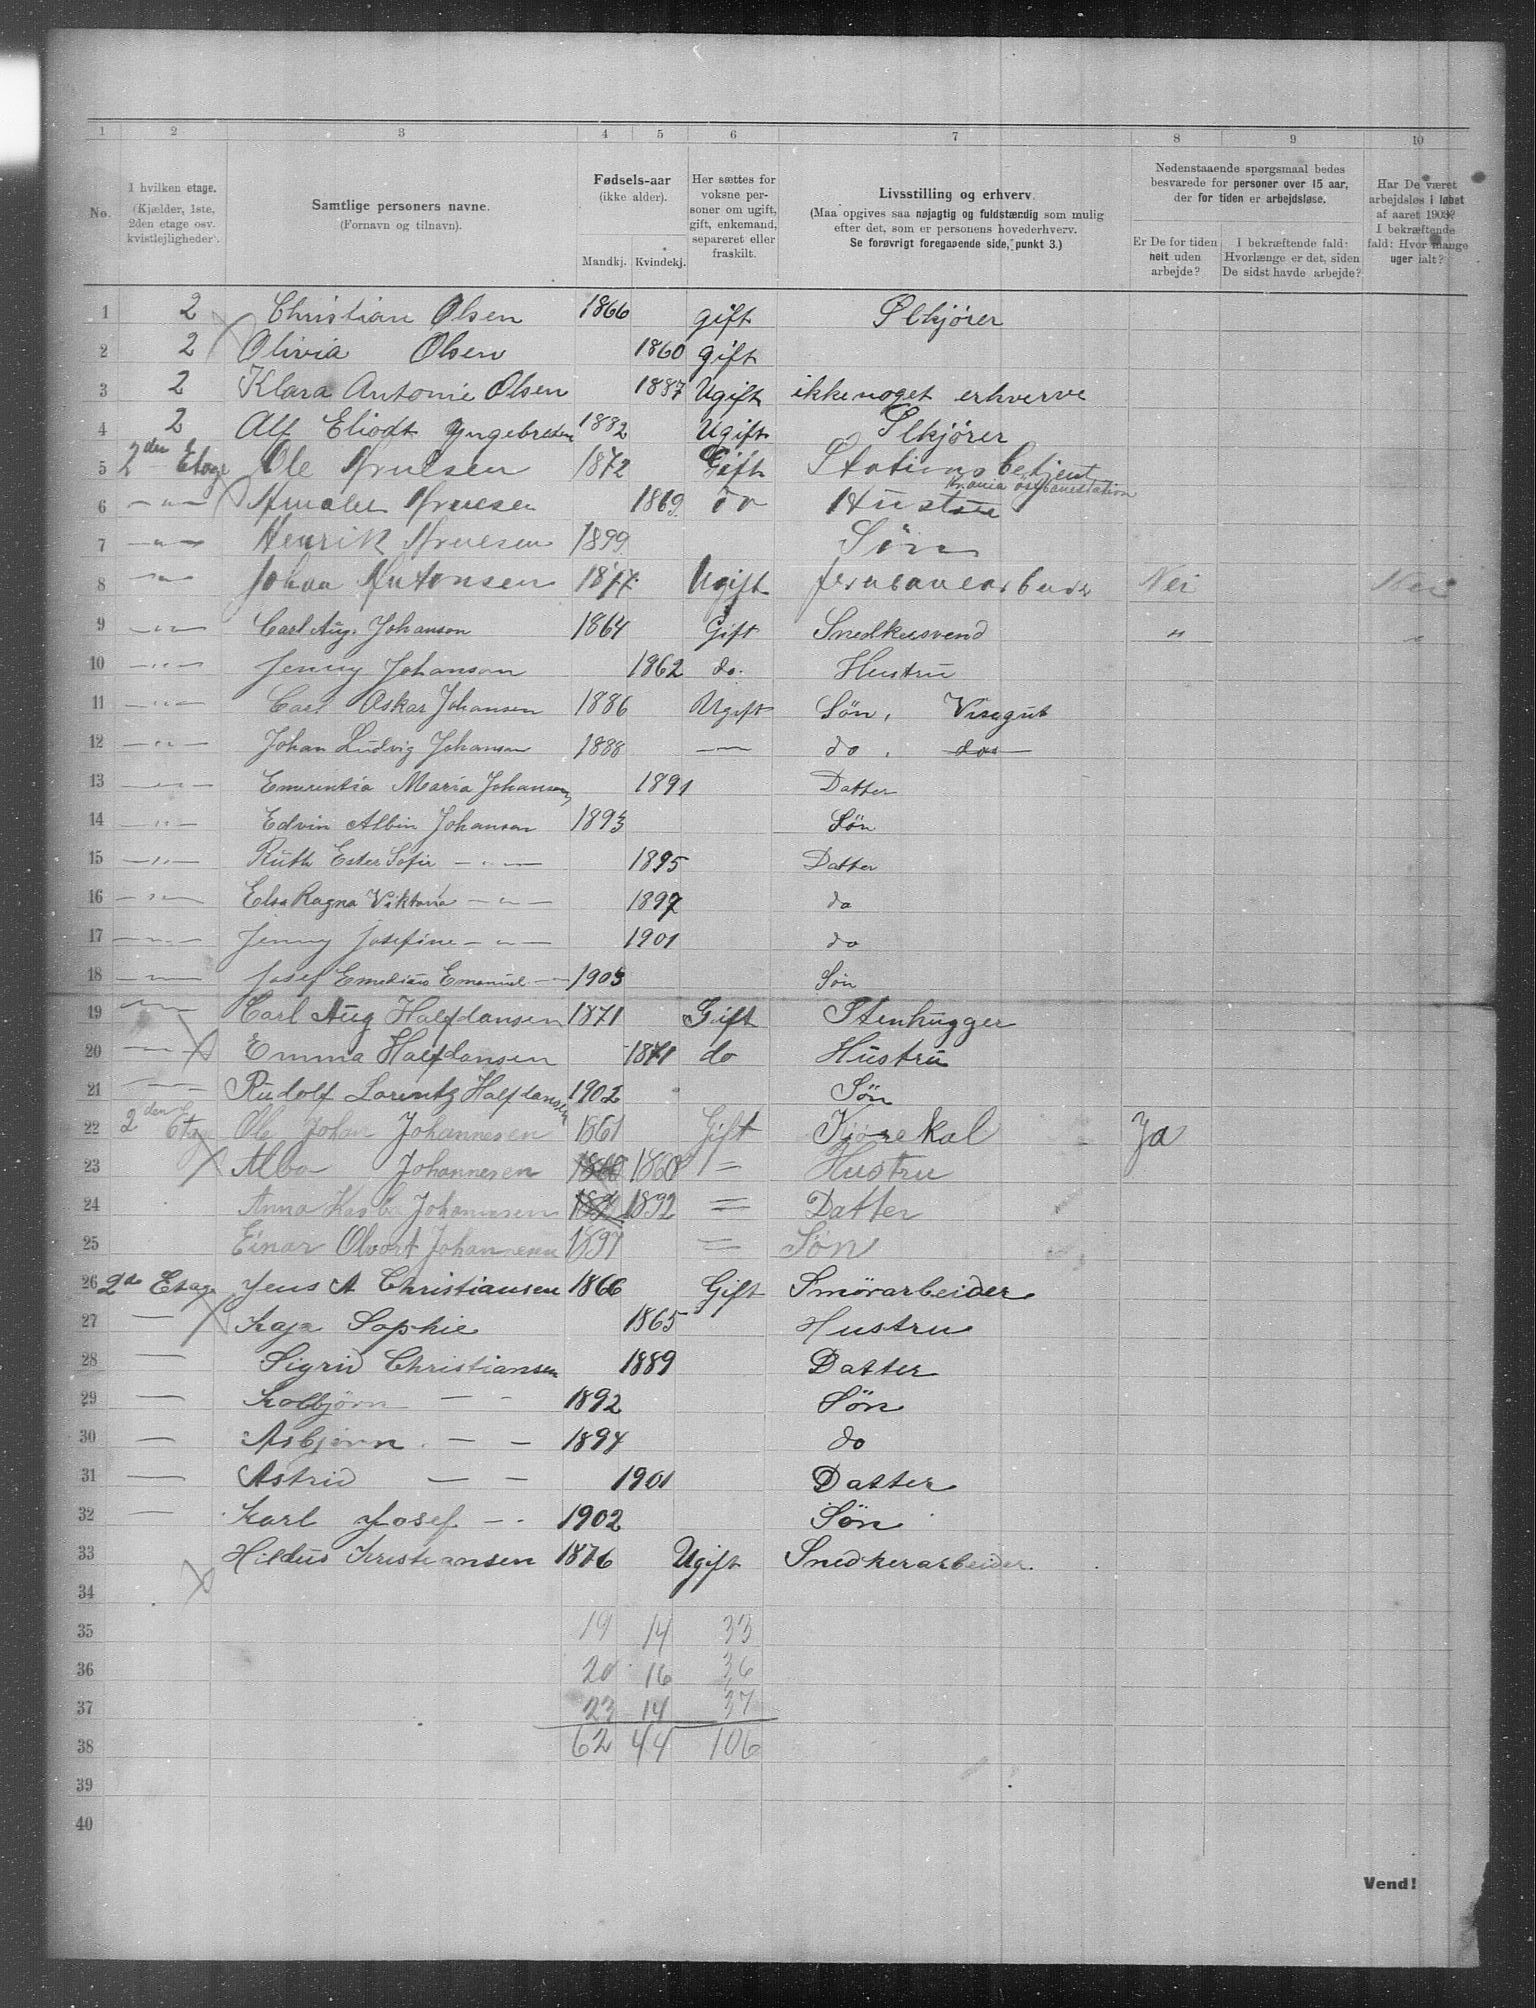 1 2 3 4 5 6 7 8 9 10
No.
I hvilken etage.
(Kjælder, 1ste,
2den etage osv.
kvistlejligheder).
Samtlige personers navne.
(Fornavn og tilnavn).
Fødsels-aar
(ikke alder).
Mandkj. Kvindekj.
Her sættes for
voksne per-
soner om ugift,
gift, enkemand,
separeret eller
fraskilt.
Livsstilling og erhverv.
(Maa opgives saa nøjagtig og fuldstændig som mulig
efter det, som er personens hovederhverv.
Se forøvrigt foregaaende side, punkt 3.)
Nedenstaaende spørgsmaal bedes
besvarede for personer over 15 aar,
der for tiden er arbejdsløse.
Er De for tiden
helt uden
arbejde?
I bekræftende fald:
Hvorlænge er det, siden
De sidst havde arbejde?
Har De været
arbejdsløs i løbet
af aaret 1903?
I bekræftende
fald: Hvor mange
uger ialt?
1 2 Christian Olsen 1866 gift Ølkjører
2 2 Olivia Olsen 1860 gift
3 2 Klara Antonie Olsen 1887 Ugift ikke noget erhverve
4 2 Alf Eliodt Yngebretsen 1882 Ugift Ølkjører
5 2den Etage Ole 1872 Gift Stationsbetjent
Krania østbanestation
6 — " — 1869 do Hustru
7 — " — Henrik 1899 Søn
8 — " — Johan Antonsen 1877 Ugift jernbanearbeider Nei Nei
9 — " — Carl Aug. Johanson 1864 Gift Snedkersvend " "
10 — " — Jenny Johanson 1862 do. Hustru
11 — " — Carl Oskar Johansen 1886 Ugift Søn, Visegut
12 — " — Johan Ludvig Johanson 1888 — do, do
13 — " — Emerentia Maria Johansen 1891 Datter
14 — " — Edvin Albin Johanson 1893 Søn
15 — " — Ruth Ester Sofie — " — 1895 Datter
16 — " — Elsa Ragna Viktoria — " — 1897 do
17 — " — Jenny Josefine — " — 1901 do
18 — " — Josef Emanuel — 1903 Søn
19 — " — Carl Aug Halfdansen 1871 Gift Stenhugger
20 — " — Emma Halfdansen 1871 do Hustru
21 — Rudolf Lorentz Halfdansen 1902 Søn
22 2den Etage Ole Johan Johannesen 1861 Gift Kjøre Kal Ja
23 Alba Johannesen 1860 = Hustru
24 Anna Johannesen 1892 = Datter
25 Einar Olvart Johannesen 1897 = Søn
26 2de Etage Jens A Christiansen 1866 Gift Smörarbeider
27 — Kaja Sophie 1865 Hustru
28 — Sigrid Christiansen 1889 Datter
29 — Kolbjörn — - 1892 Søn
30 — Asbjørn — — 1894 do
31 — Astrid — — 1901 Datter
32 — Karl Josef — - 1902 Søn
33 Hildus Kristiansen 1876 Ugift Snedkerarbeider.
34
35 19 14 33
36 20 16 36
37 23 14 37
38 62 44 106
39
40
Vend!